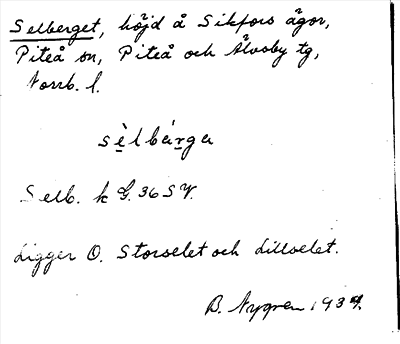 Selberget, höjd å Sikfors ägor,
Piteå sn, Piteå och Älvsby tg,
Norrb. l.
sèlbárga
Selb. k G. 36 SV.
Ligger O. Storselet och Lillselet.
B. Nygren 1937.